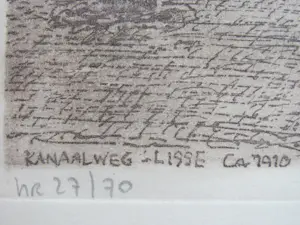 KANAALWEG - LISSE Ca. 1910
nr 27/70